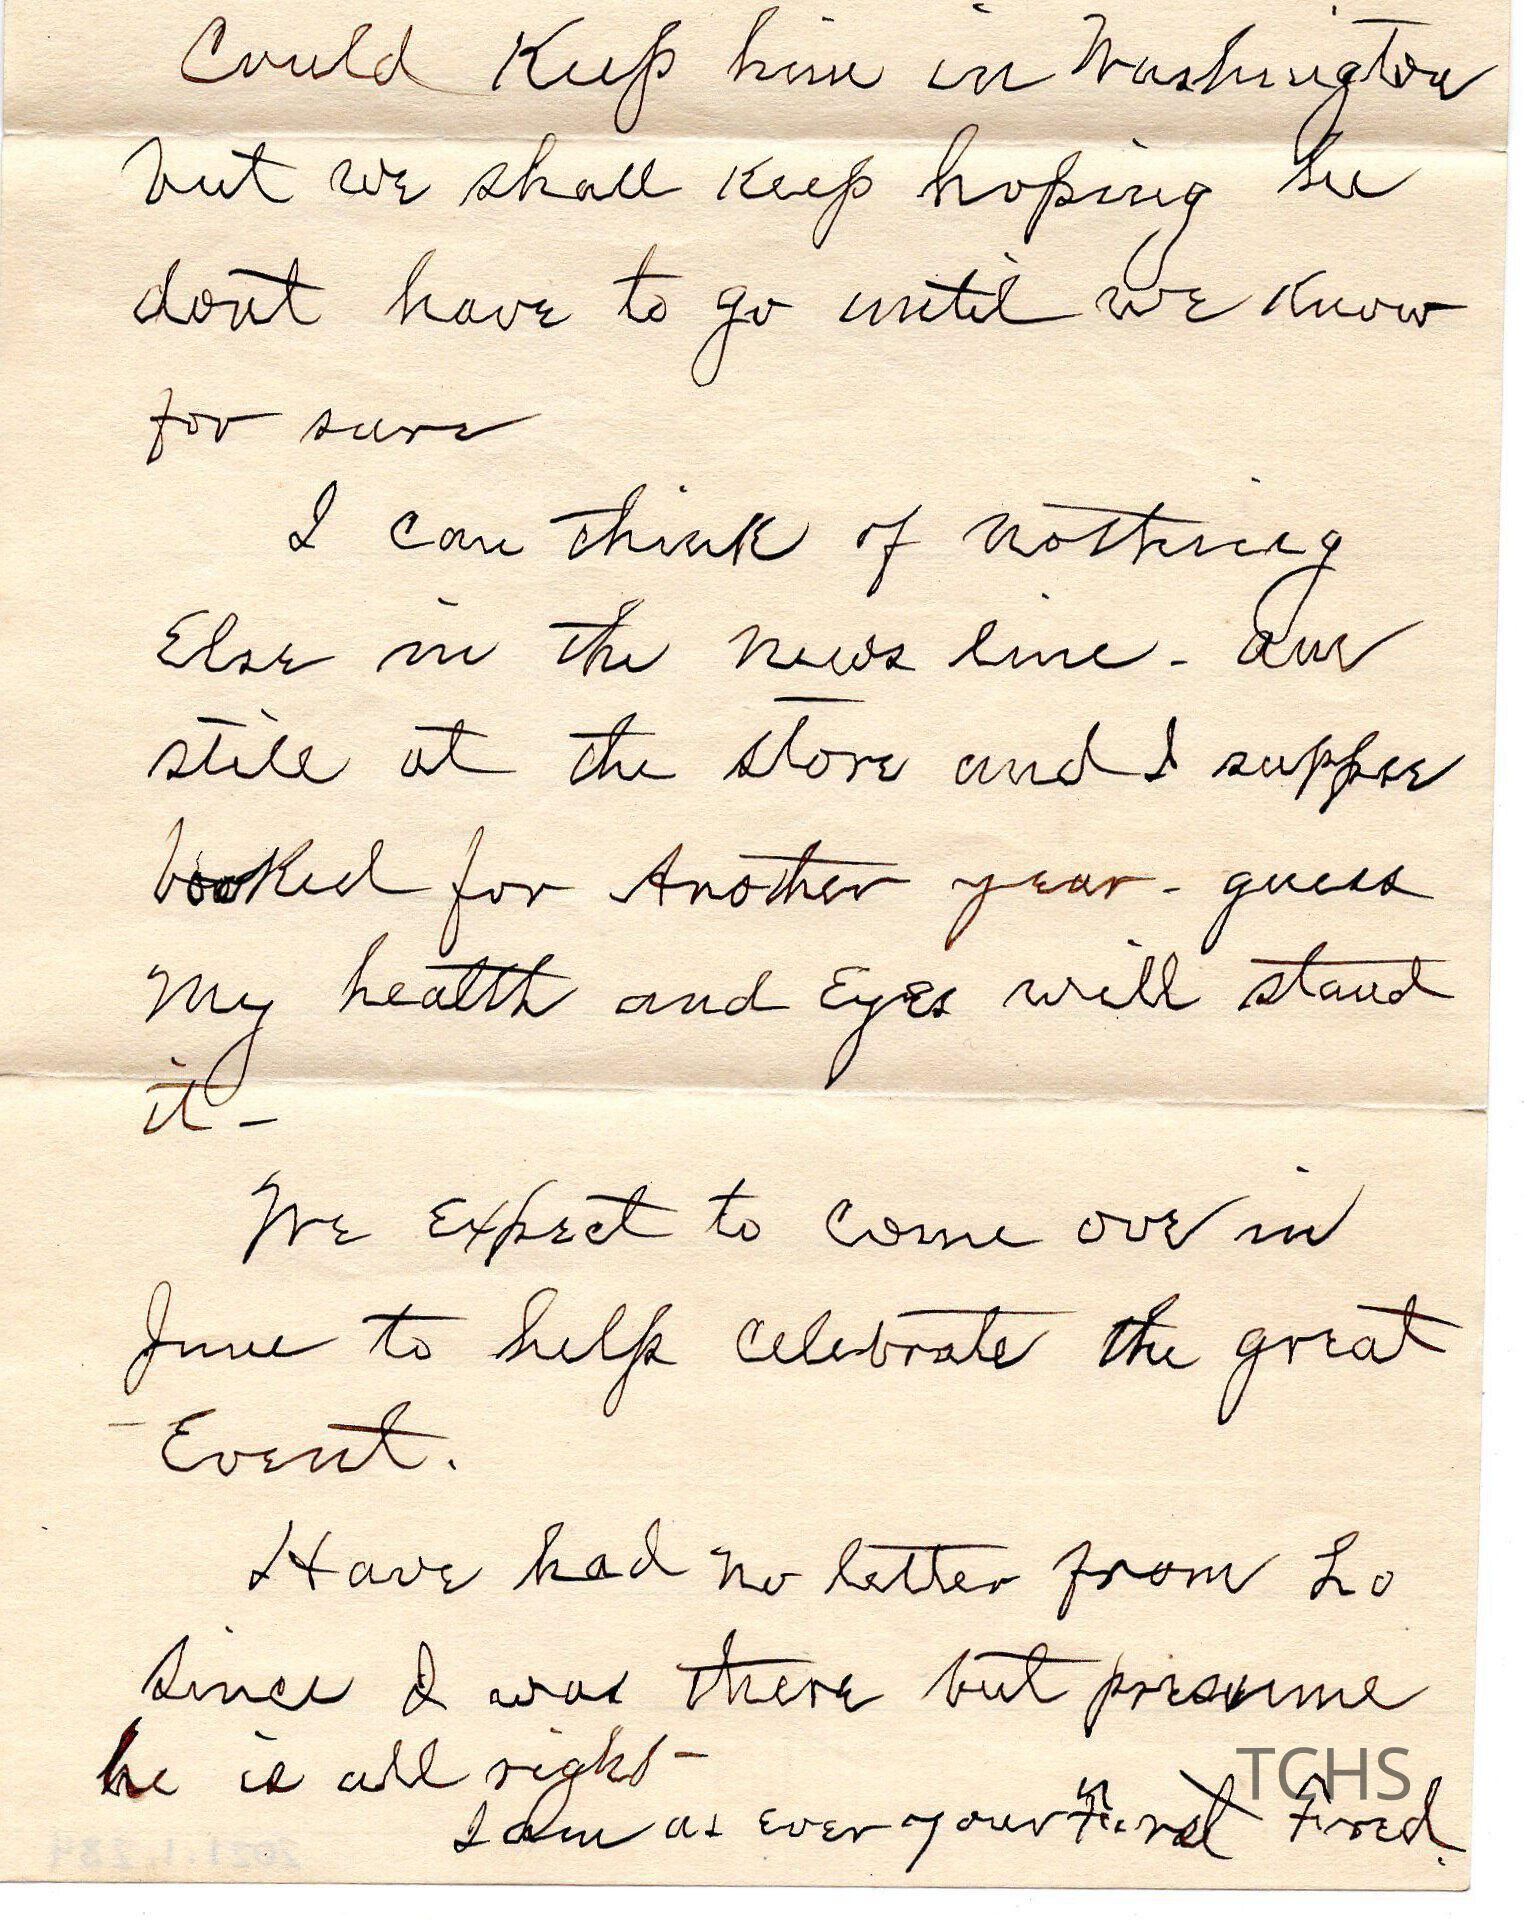 Could Keep him in Washington
but we shall Keep hoping he
dont have to go until we Know
for sure
I can think of nothing
Else in the news line - am
still at the store and I suppose
booked for Another year - guess
My health and Eyes will stand
it -
We Expect to come over in
June to help celebrate the great
- Event.
Have had no letter from Lo
since I was there but presume
he is all right -
I am as ever your Fred.
TCHS
2021.1.284